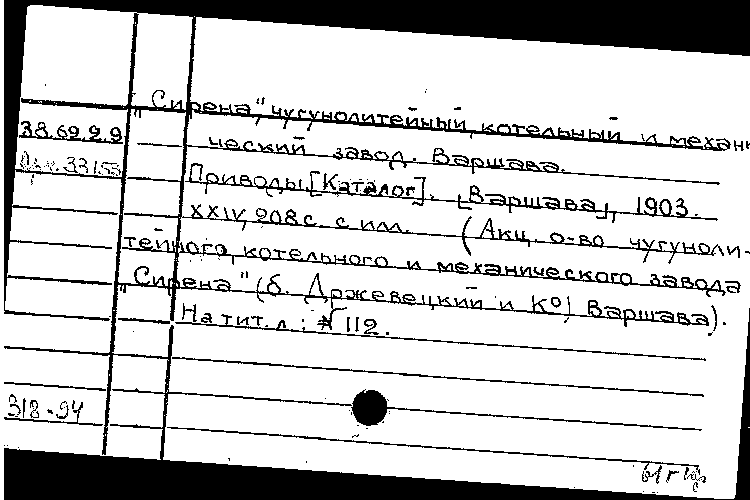 „Сирена", чугунолитейный, котельный и механи
38.69.2.9
ческий завод. Варшава.
33153
Приводы. [Каталог]. [Варшава], 1903.
XXIV, 208 с. с илл. (Акц. о-во чугуноли-
тейного, котельного и механического завода
„Сирена" (б. Држевецкий и К⁰) Варшава).
На тит. л.: № 112.
318-94